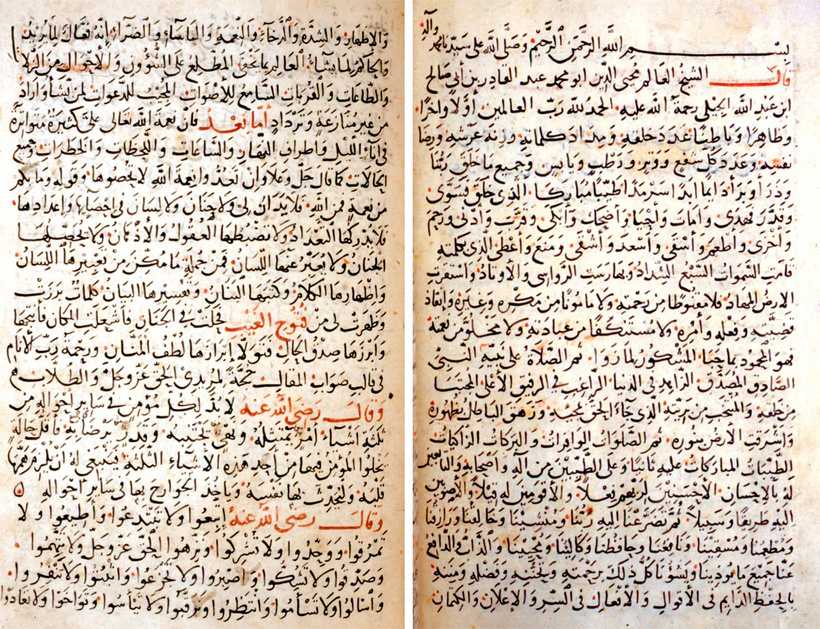 بسم الله الرحمن الرحيم وصلى الله على سيدنا محمد وآله
قال الشيخ العالم محيى الدين ابو محمد عبد القادر بن أبي صالح
ابن عبد الله الجيلى رحمة الله عليه الحمد لله رب العالمين أولا وآخرا
وظاهرا وباطنا عدد خلقه ومداد كلماته وزنة عرشه ورضا
نفسه وعدد كل شفع ووتر ورطب ويابس وجميع ما خلق ربنا
وذرأ وبرأ دائما ابدا سرمدا طيبا مباركا الذى خلق فسوى
وقدر فهدى وأمات وأحيا وأضحك وأبكى وقرب وأدنى ورحم
وأخرى وأطعم وأسقى وأسعد وأشقى ومنع وأعطى الذى بكلمته
قامت السموات السبع الشداد وبها رست الرواسى والأوتاد واستقرت
الارض المهاد فلا مقنوطا من رحمته ولا مأمونا من مكره وغيره وإنفاذ
قضيته وفعله وأمره ولا مستنكفا من عبادته ولا مخلو من نعمه
فهو المحمود بما حبا المشكور لما زوا ثم الصلاة على نبيه النبي
الصادق المصدق الزاهد فى الدنيا الراغب فى الرفيق الأعلى المجتبا
من خلقه والمنتخب من بريته الذى جاء الحق بمجيه وزهق الباطل بظهوره
وأشرقت الارض بنوره ثم الصلوات الوافرات والبركات الزاكيات
الطيبات المباركات عليه ثانيا وعلى الطيبين من آله وأصحابه والتابعين
له بالإحسان الأحسنين لربهم فعلا والأقومين له قيلا والأصوبين
اليه طريقا وسبيلا ثم تضرعنا اليه ربنا ومنشينا وخالقنا ورازقنا
ومطعمنا ومسقينا ونافعنا وحافظنا وكالينا ومحيينا والذاب والدافع
عنا جميع ما يوذينا ويسؤنا كل ذلك برحمته وتحننه وفضله ومنه
بالحفظ الدايم فى الأقوال والأفعال فى السر والإعلان والكتمان
والإظهار والشدة والرخاء والنعمة والبأساء والضراء إنه فعال لما يريد
والحاكم لما يشاء العالم بما يخفى المطلع على الشؤون والأحوال من الزلات
والطاعات والقربات السامع للأصوات المجيب للدعوات لمن يشاء وأراد
من غير منازعة وترداد أما بعد فان نعمة الله تعالى على كثيرة متواترة
فى آناء الليل وأطراف النهار والساعات واللحظات والخطرات وجميع
الحالات كما قال جل وعلا وان تعدوا نعمة الله لا تحصوها وقوله وما بكم
من نعمة فمن الله فلا يدان لى ولا جنان ولا لسان فى إحصائها وإعدادها
فلا يدركها التعداد ولا تضبطها العقول والأذهان ولا يحصيها
الجنان ولا يعبر عنها اللسان فمن جملة ما مكن من تعبيرها اللسان
وإظهارها الكلام وكتبها البنان وتفسيرها البيان كلمات برزت
وظهرت لى من فتوح الغيب فحلت فى الجنان فأشغلت المكان فأنتجها
وأبرزها صدق الحال فتولا إبرازها لطف المنان ورحمة رب الأنام
فى قالب صواب المقال حجة لمريدى الحق عز وجل والطلاب
وقال رضى الله عنه لا بد لكل مؤمن فى ساير أحواله من
ثلثة أشياء أمر يمتثله ونهى يجتنبه وقدر يرضا به فأقل حالة
يخلوا المؤمن فيها من أحد هذه الأشياء الثلثة فينبغى له أن يلزم همها
قلبه وليحدث بها نفسه ويأخذ الجوارح بها فى ساير احواله
وقال رضى الله عنه اتبعوا ولا تبتدعوا وأطيعوا ولا
تمرقوا ووحدوا ولا تشركوا ونزهوا الحق عز وجل ولا تتهموا
وصدقوا ولا تشكوا واصبروا ولا تجزعوا واثبتوا ولا تنفروا
واسألوا ولا تسأموا وانتظروا وترقبوا ولا تيأسوا وتواخوا ولا تعادوا